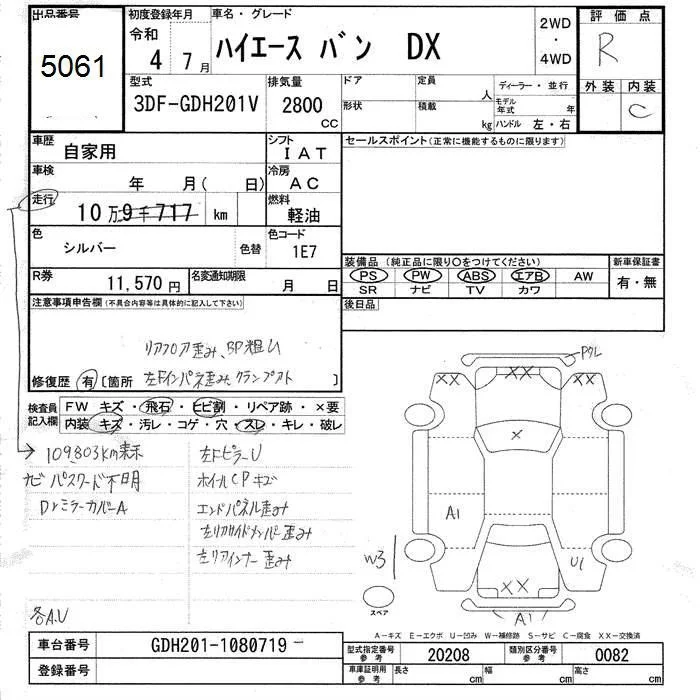 出品番号
5061
初度登録年月
令和
4 7月
車名・グレード
ハイエース バン DX
2WD
・
4WD
評価点
R
外装 内装
C
型式
3DF-GDH201V
排気量
2800
cc
ドア
形状
定員
人
積載
kg
ディーラー・並行
モデル
年式
年
ハンドル 左・右
車歴
自家用
シフト
IAT
セールスポイント(正常に機能するものに限ります)
車検
年 月( 日)
冷房
AC
走行
10万9千717 km
燃料
軽油
色
シルバー
色替
色コード
1E7
R券
11,570円
名変通知期限
月 日
装備品 (純正品に限り○をつけてください)
PS PW ABS エアB AW
SR ナビ TV カワ
新車保証書
有・無
後日品
注意事項申告欄(不具合内容等は具体的に記入して下さい)
リアフロア歪み、BP粗ム
修復歴 有 [箇所 左Fインパネ歪み,クランプアト ]
検査員
記入欄
FW キズ・飛石・ヒビ割・リペア跡・×要
内装 キズ・汚レ・コゲ・穴・スレ・キレ・破レ
109,803km表示
ナビ パスワード不明
DrミラーカバーA
各A.U
左FピラーU
ホイールCPキズ
エンドパネル歪み
左リアサイドメンバー歪み
左リアインナー歪み
XX
XX
XX
×
A1
W3
U1
XX
A1
スペア
A―キズ E―エクボ U―凹み W―補修跡 S―サビ C―腐食 XX―交換済
車台番号
GDH201-1080719
登録番号
型式指定番号
参考
20208
類別区分番号
参考
0082
車庫証明用
参考
長さ
cm
幅
cm
高さ
cm